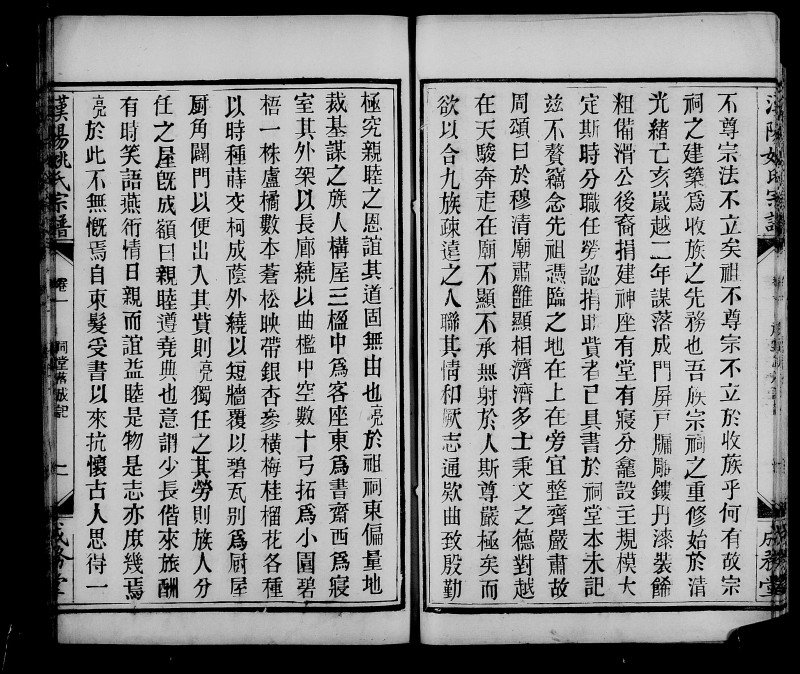 不尊宗法不立矣祖不尊宗不立於收族乎何有故宗
祠之建築爲收族之先務也吾族宗祠之重修始於清
光緒己亥嵗越二年謀落成門屏戸牖雕鏤丹漆裝餙
粗備滑公後裔捐建神座有堂有寢分龕設主規模大
定斯時分職任勞認捐助貲者已具書於祠堂本末記
兹不贅竊念先祖憑臨之地在上在旁宜整齊嚴肅故
周頌曰於穆清廟肅雝顯相濟濟多士秉文之德對越
在天駿奔走在廟不顯不承無射於人斯尊嚴極矣而
欲以合九族疎遠之人聯其情和厥志通欵曲致殷勤
極究親睦之恩誼其道固無由也亮於祖祠東偏量地
裁基謀之族人構屋三楹中爲客座東爲書齋西爲寢
室其外架以長廊繞以曲檻中空數十弓拓爲小園碧
梧一株盧橘數本蒼松映帶銀杏參橫梅桂榴花各種
以時種蒔交柯成蔭外繞以短牆覆以碧瓦别爲厨屋
厨角闢門以便出入其貲則亮獨任之其勞則族人分
任之屋旣成額曰親睦遵堯典也意謂少長偕來族酬
有時笑語燕術情日親而誼益睦是物是志亦庶幾焉
亮於此不無慨焉自束髮受書以來抗懷古人思得一
漢陽姚氏宗譜
卷一
祠堂落成記
成務堂